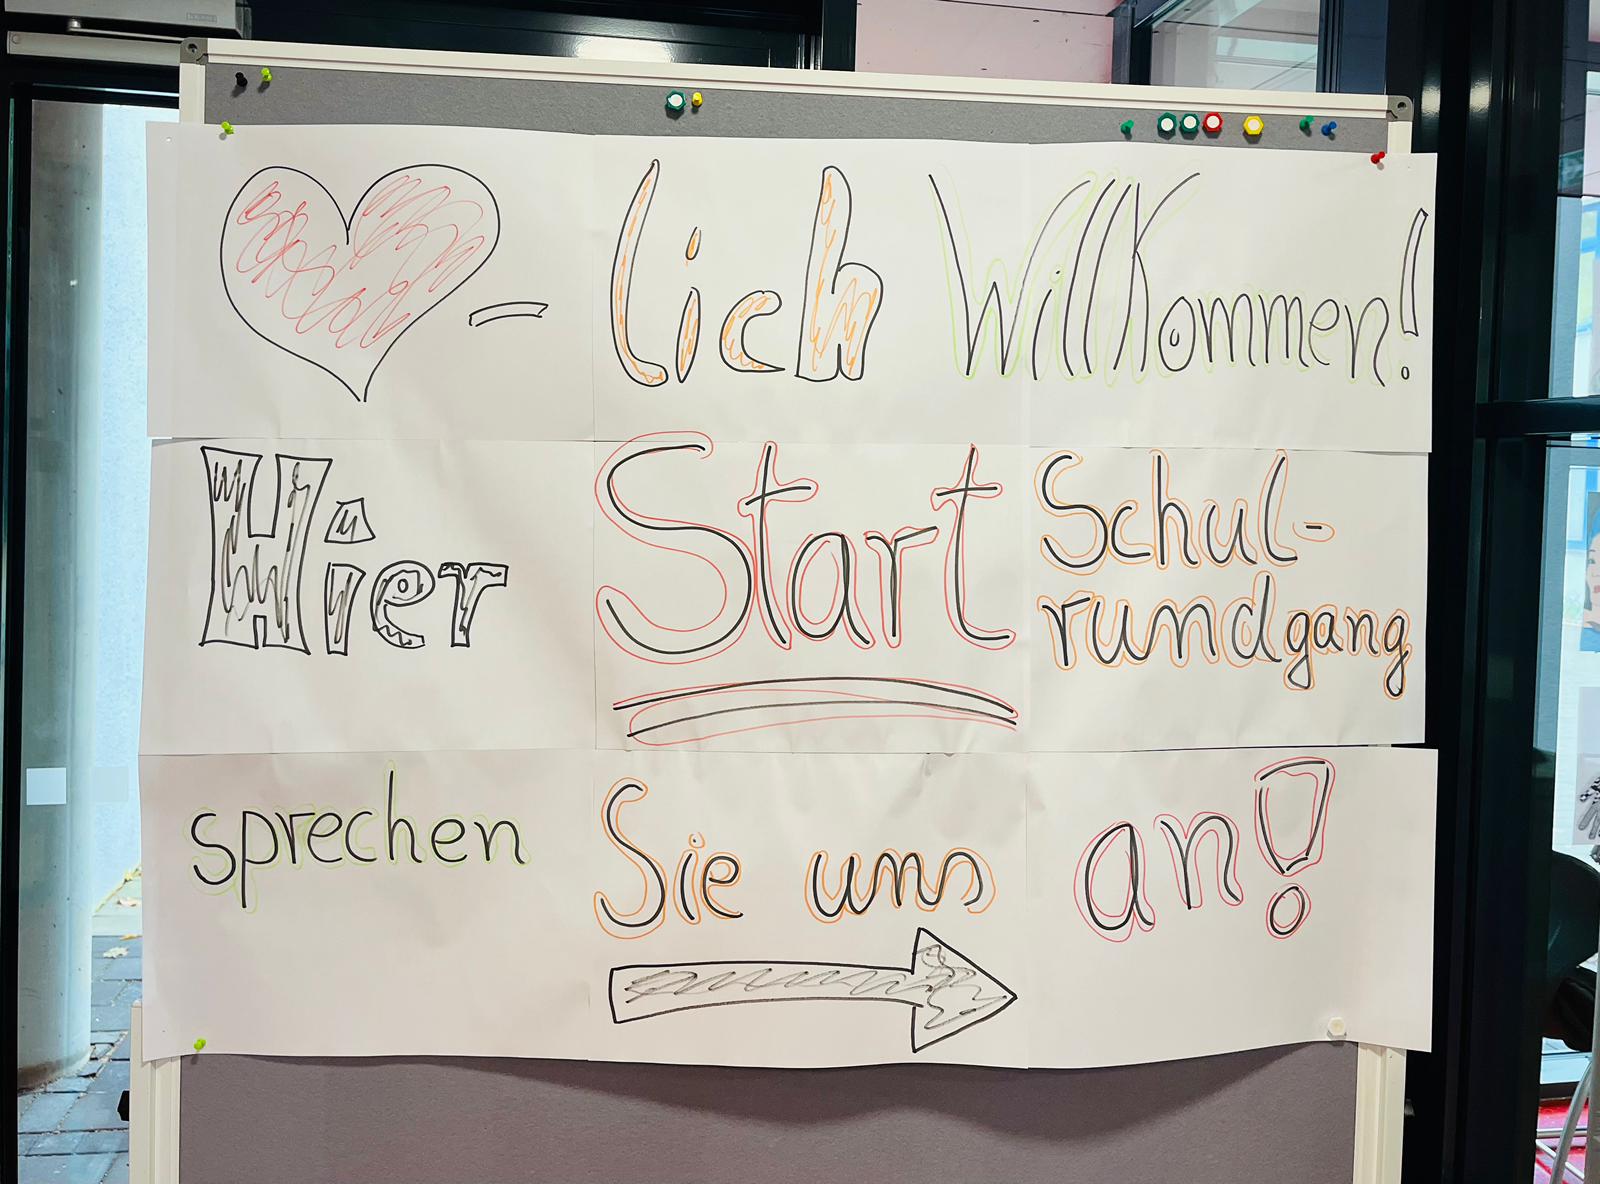 -lich Willkommen!
Hier Start Schul-
rundgang
sprechen Sie uns an!